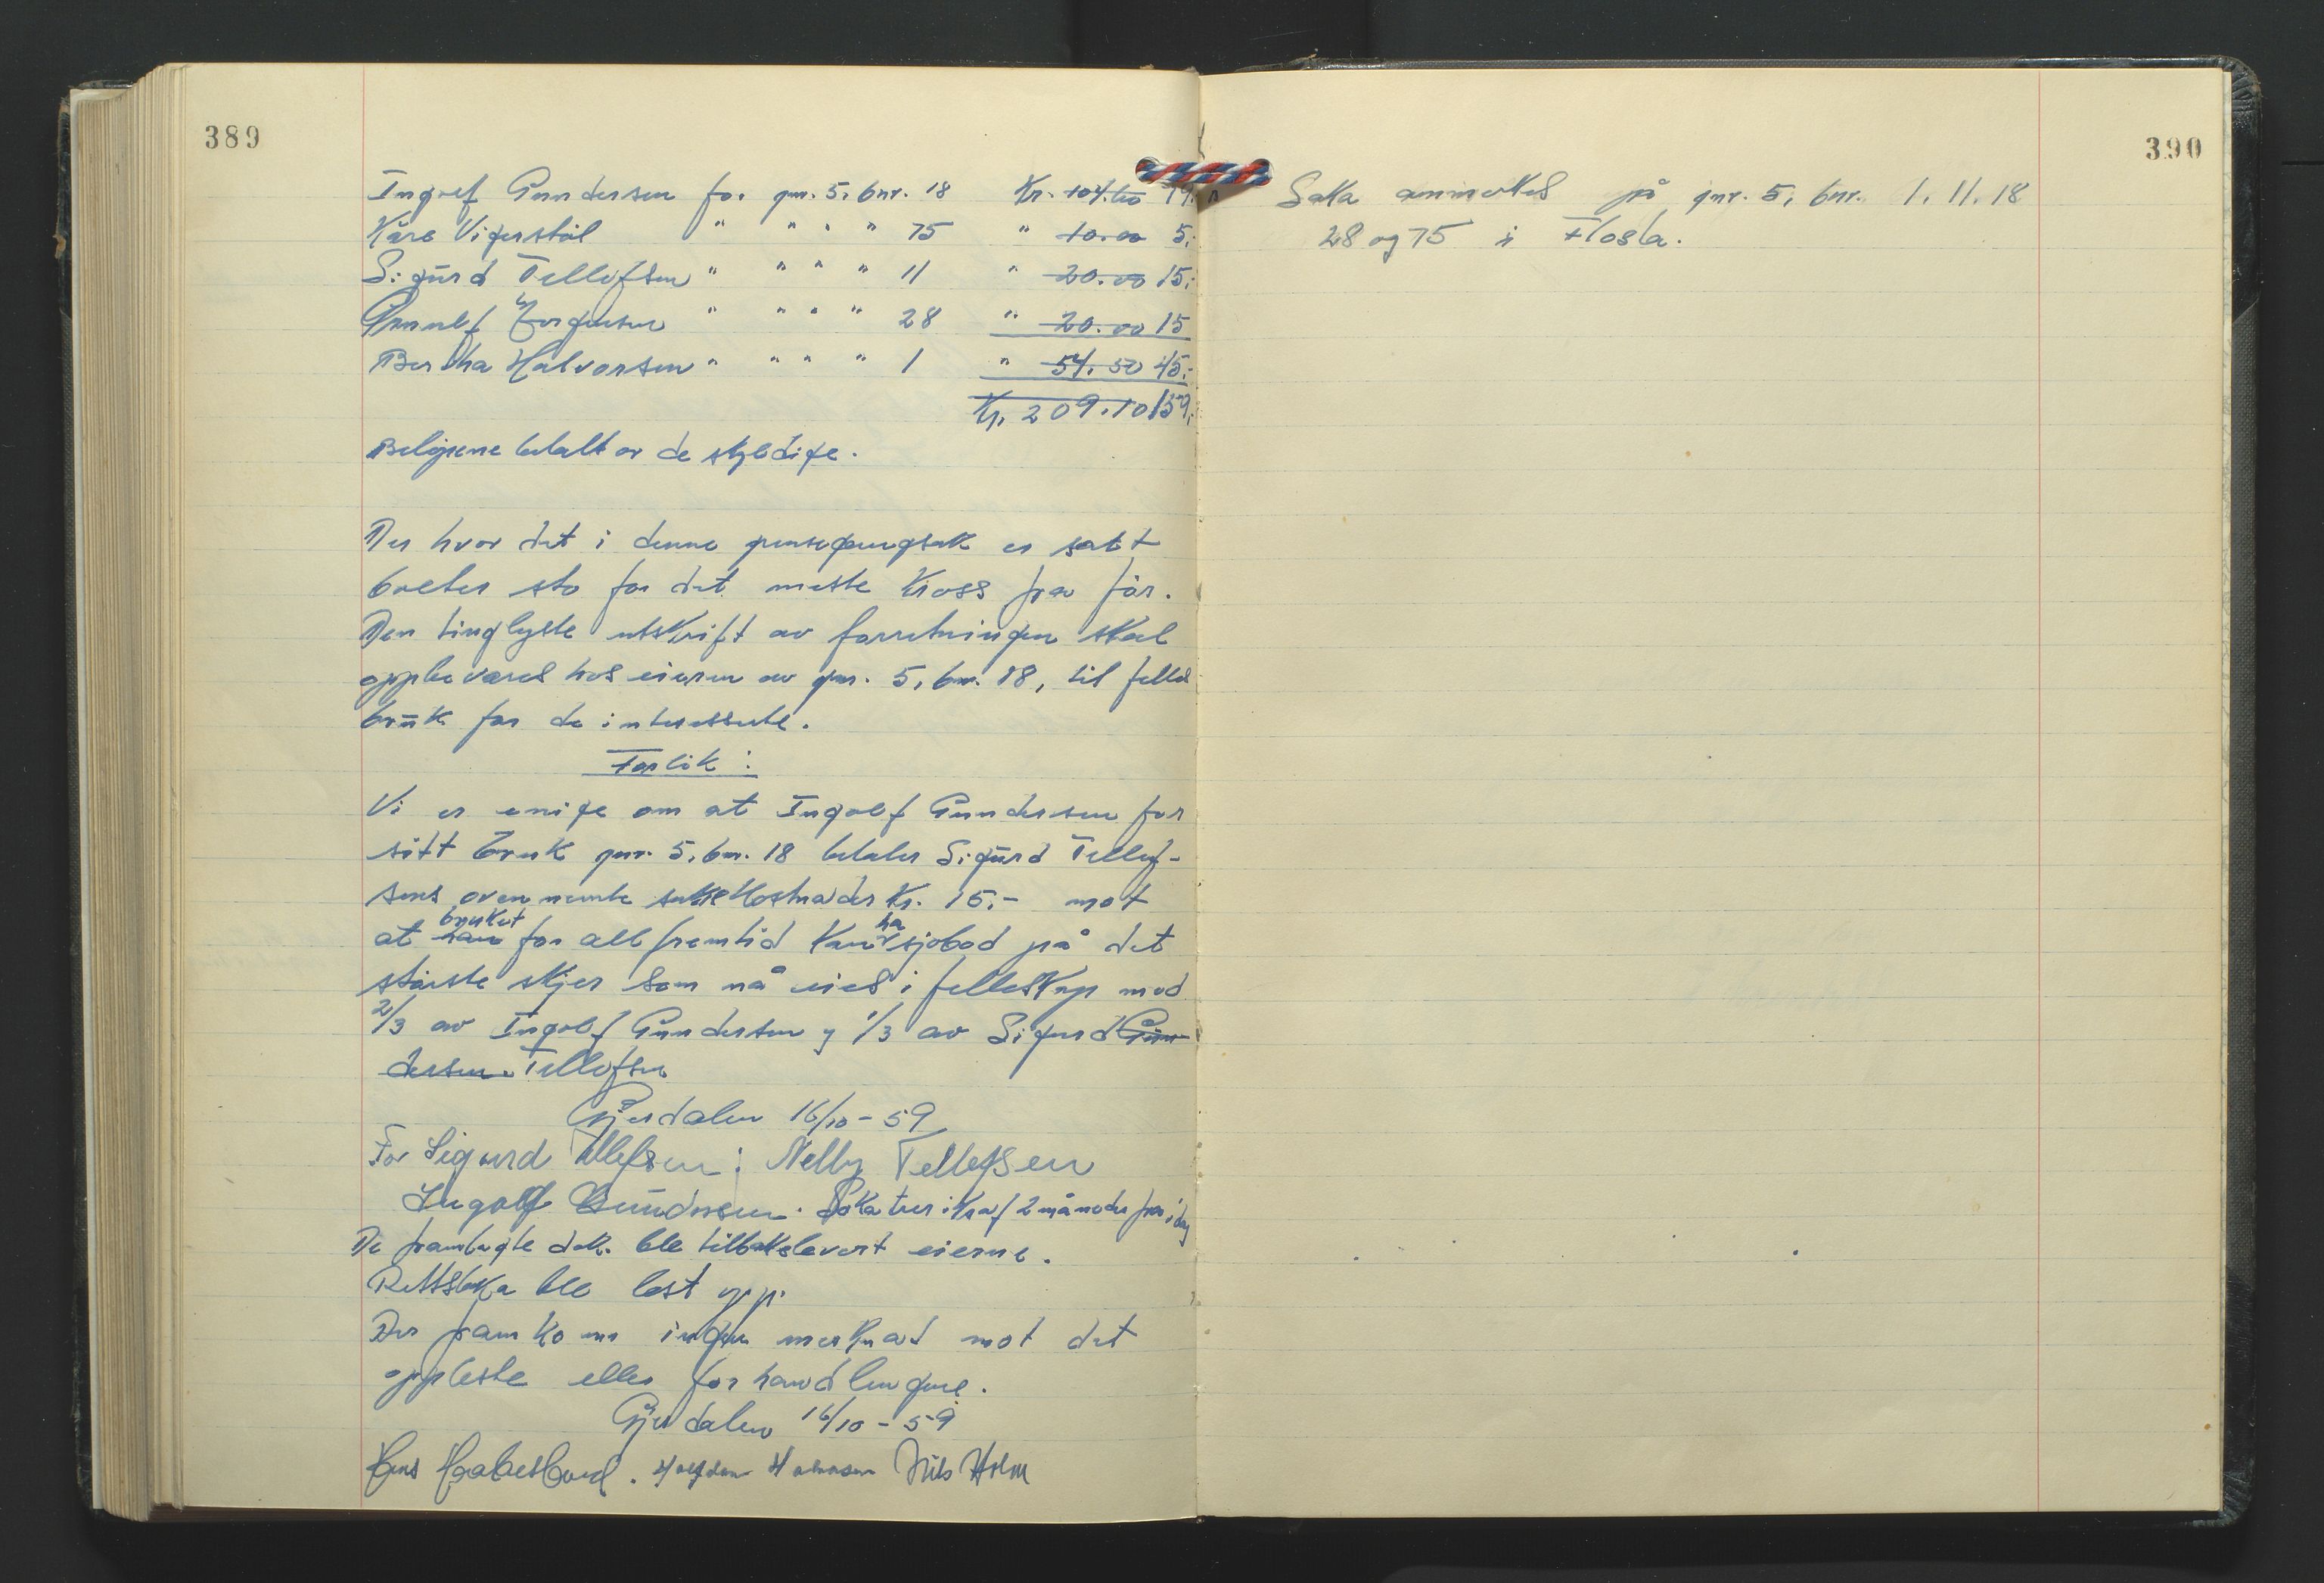 389
Ingolf Gundersen for gnr. 5, bnr. 18 Kr. 104.60 79.
Kåre Vigerstøl " " " " 75 " 10.00 5.-
Sigurd Tellefsen " " " " 11 " 20.00 15.-
Gunnulf Torgersen " " " " 28 " 20.00 15
Bertha Halvorsen " " " " 1 " 54.50 45.-
Kr. 209.10 159.-
Beløpene betalt av de skyldige.
Der hvor det i denne grensegangsak er satt
bolter sto for det meste kross fra før.
Den tinglyste utskrift av forretningen skal
oppbevares hos eieren av gnr. 5, bnr. 18, til felles
bruk for de interesserte.
Forlik:
Vi er enige om at Ingolf Gundersen for
sitt bruk gnr. 5, bnr. 18 betaler Sigurd Tellef-
sens ovennevnte sakskostnader Kr. 15.- mot
at han bruket for all fremtid kan ha sjøbod på det
største skjer som nå eies i felleskap med
2/3 av Ingolf Gundersen og 1/3 av Sigurd Gun-
dersen. Tellefsen
Gjerdalen 16/10-59
For Sigurd Tellefsen: Nelly Tellefsen
Ingolf Gundersen. Saka trer i kraf 2 måneder fra i dag
De framlagte dok. ble tilbakelevert eierne.
Rettsboka ble lest opp.
Der framkom ingen merknad mot det
oppleste eller forhandlingene.
Gjerdalen 16/10-59
Jens Halvdan Halvorsen Nils Holm
390
Saka anmerkes på gnr. 5, bnr. 1, 11, 18
28 og 75 i Flosta.